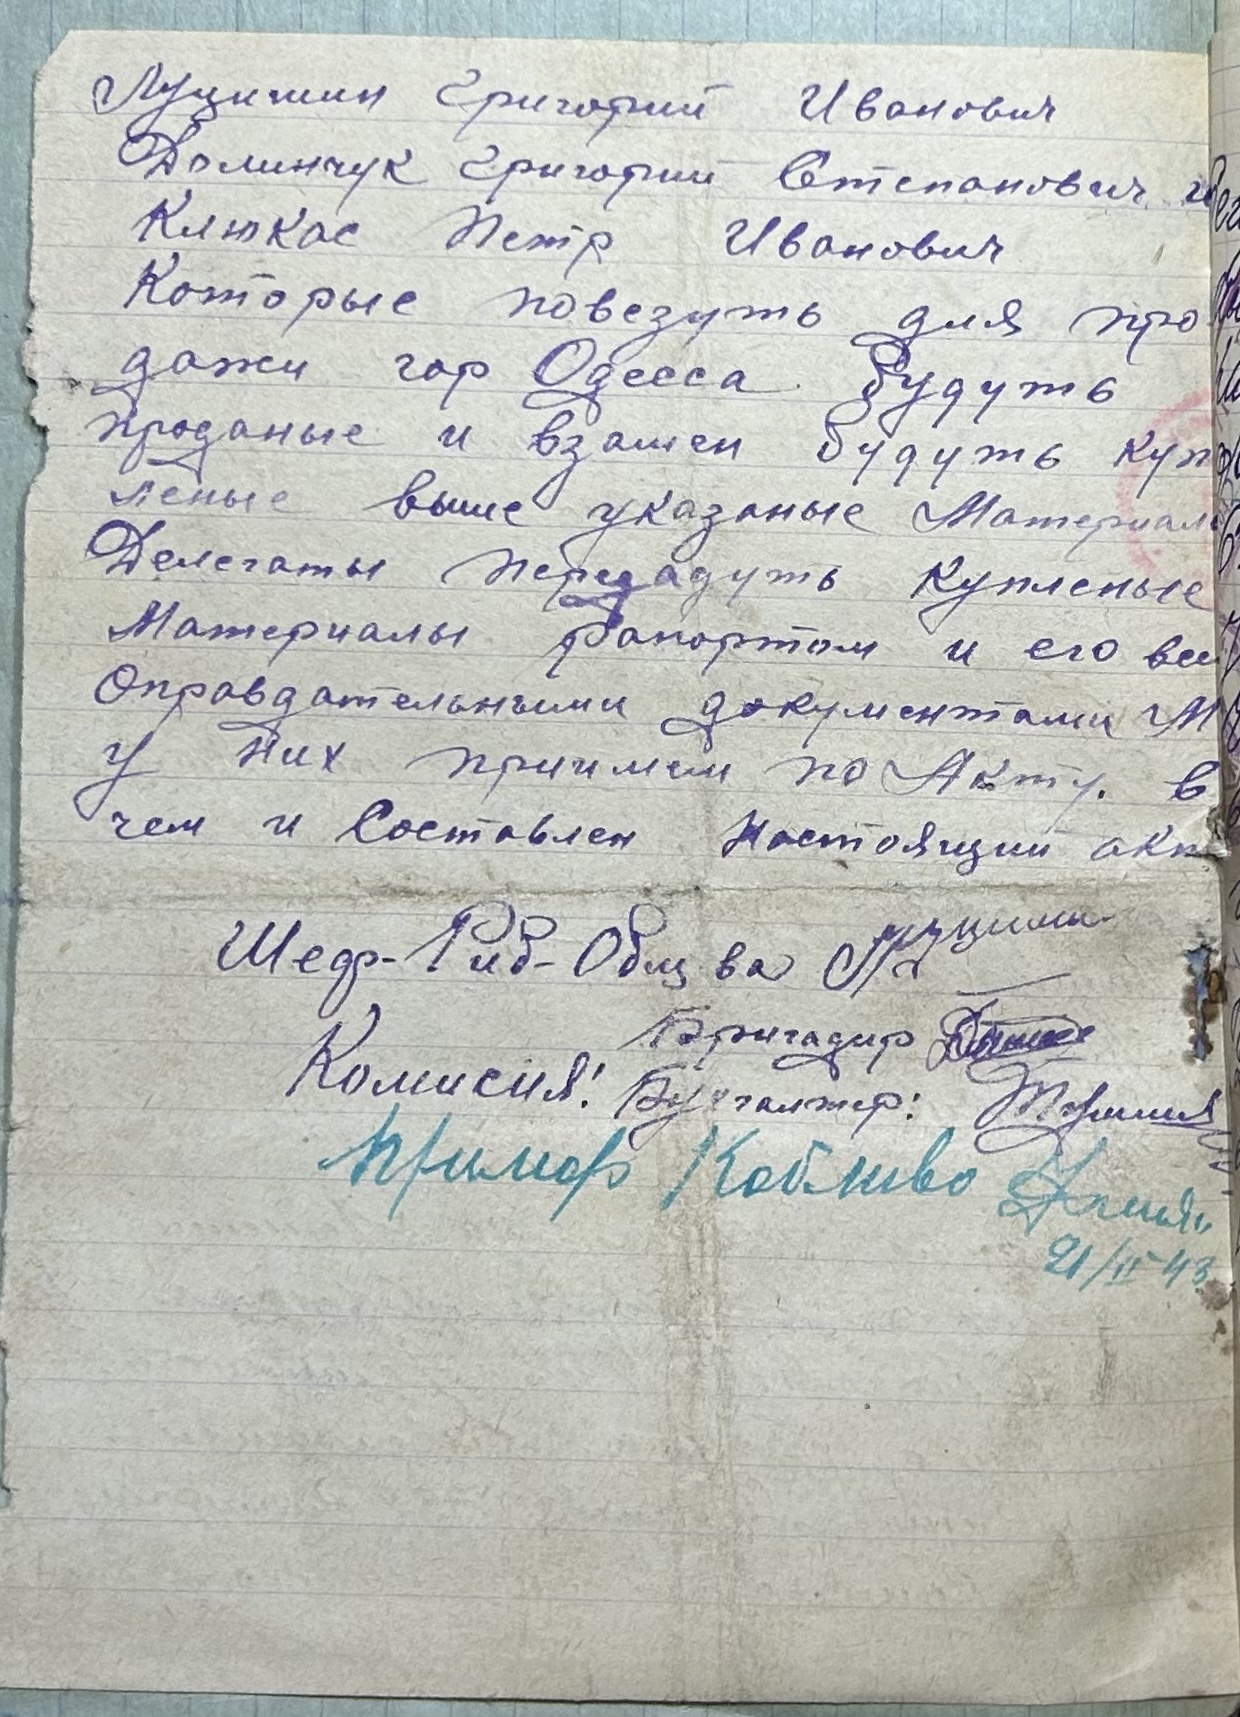 Луцишин Григорий Иванович
Долинчук Григорий Степанович и
Клюкас Петр Иванович
Которые повезуть для про
дажи гор Одесса. будуть
проданые и взамен будуть куп
леные выше указаные Материал
Делегаты передадуть купленые
Материалы рапортом и его все
Оправдательными документами М
у них приимем по Акту. в
чем и Составлен Настоящий акт
Шеф-Риб-Общ ва
Бригадир
Комисия! Бухгалтер:
Примар Коблево
21/II 43